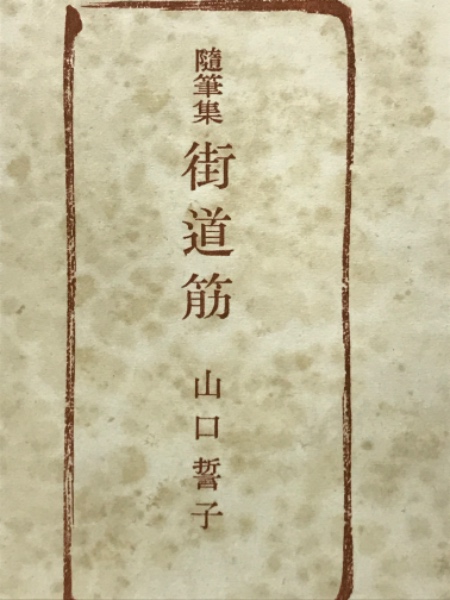 隨筆集 街道筋 山口誓子